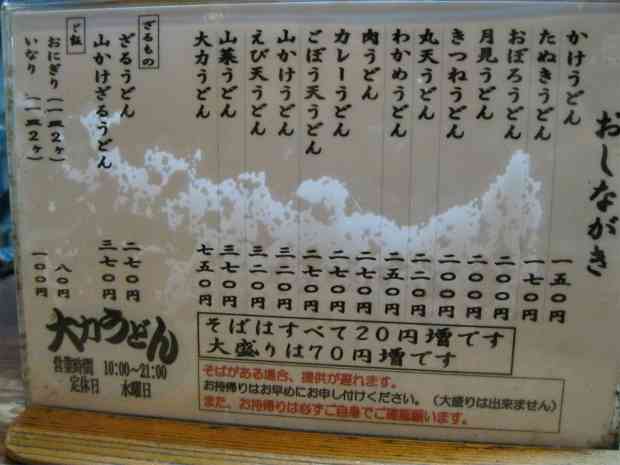 おしながき
かけうどん 一五〇円
たぬきうどん 一七〇円
おぼろうどん 二〇〇円
月見うどん 二〇〇円
きつねうどん 二〇〇円
丸天うどん 二二〇円
わかめうどん 二五〇円
肉うどん 二七〇円
カレーうどん 二七〇円
ごぼう天うどん 二七〇円
山かけうどん 三二〇円
えび天うどん 三二〇円
山菜うどん 三七〇円
大力うどん 七五〇円
ざるもの
ざるうどん 二七〇円
山かけざるうどん 三七〇円
ご飯
おにぎり(一皿2ヶ) 八〇円
いなり(一皿2ヶ) 一〇〇円
大力うどん
営業時間 10:00~21:00
定休日 水曜日
そばはすべて20円増です
大盛りは70円増です
そばがある場合、提供が遅れます。
お持帰りはお早めにお申し付けください。(大盛りは出来ません)
また、お持帰りは必ずご自身でご確認願います。